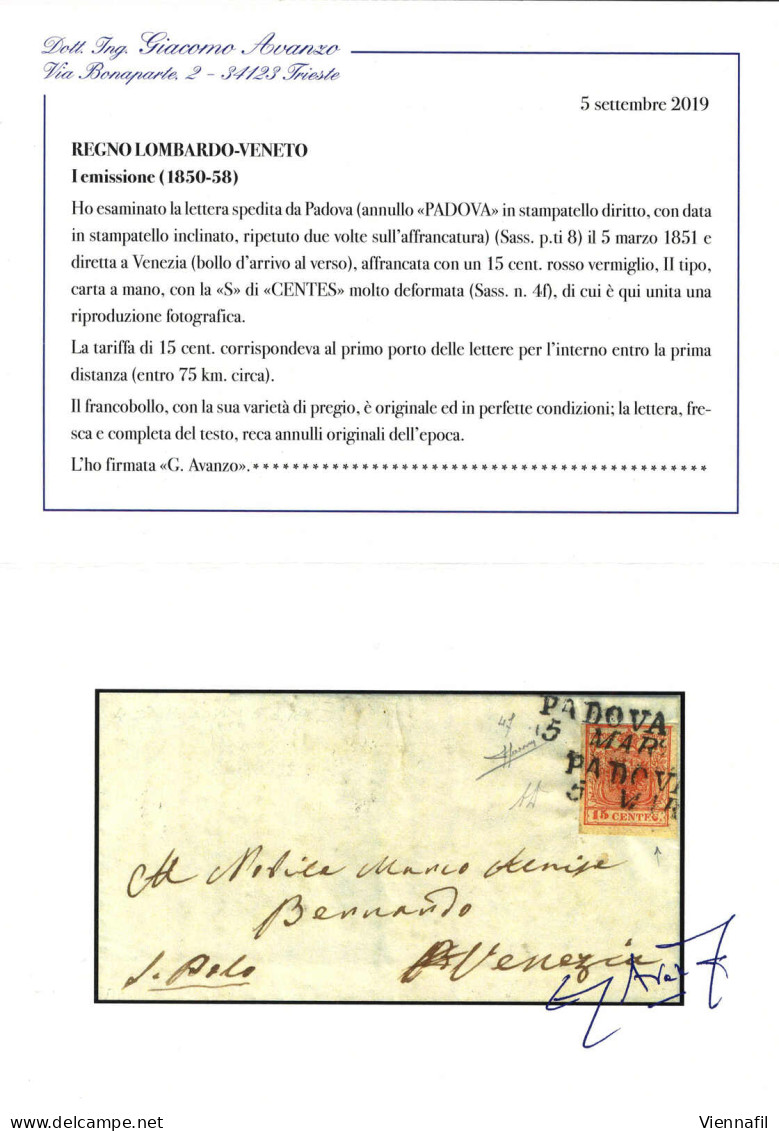 Dott. Ing. Giacomo Avanzo
Via Bonaparte, 2 - 34123 Trieste
5 settembre 2019
REGNO LOMBARDO-VENETO
I emissione (1850-58)
Ho esaminato la lettera spedita da Padova (annullo «PADOVA» in stampatello diritto, con data
in stampatello inclinato, ripetuto due volte sull'affrancatura) (Sass. p.ti 8) il 5 marzo 1851 e
diretta a Venezia (bollo d'arrivo al verso), affrancata con un 15 cent. rosso vermiglio, II tipo,
carta a mano, con la «S» di «CENTES» molto deformata (Sass. n. 4f), di cui è qui unita una
riproduzione fotografica.
La tariffa di 15 cent. corrispondeva al primo porto delle lettere per l'interno entro la prima
distanza (entro 75 km. circa).
Il francobollo, con la sua varietà di pregio, è originale ed in perfette condizioni; la lettera, fre-
sca e completa del testo, reca annulli originali dell'epoca.
L'ho firmata «G. Avanzo».**********************************************
PADOVA
5 MAR
PADOVA
5 MAR
15 CENTES.
Al Nobile Marco
Bernardo
S. Polo Venezia
Viennafil